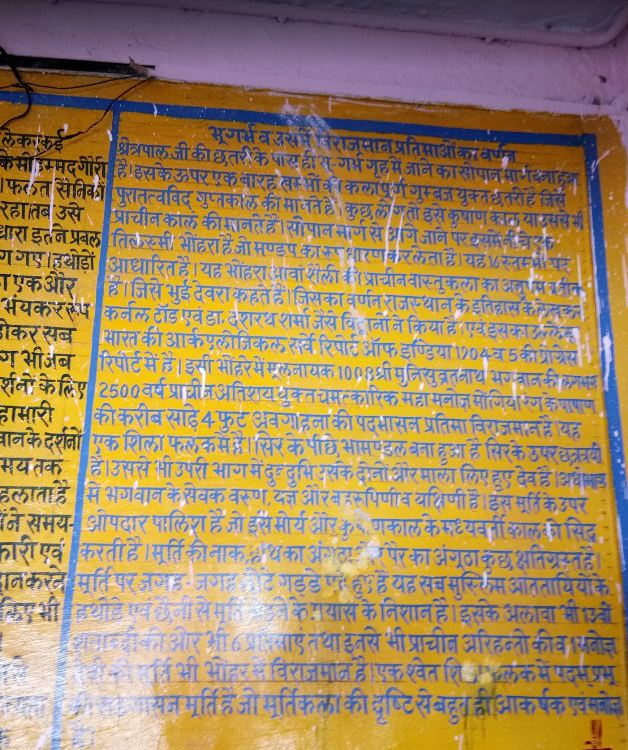 लेकर कई
के मोहम्मद गौरी
। फलत सैनिकों
रहा तब उसे
धारा इतने प्रबल
ग गए। हथोड़ों
ा एक और
भंयकर रूप
होकर सब
ग भी जब
र्शनों के लिए
हामारी
वान के दर्शनों
मय तक
हलाता है
ने समय-
कारी एवं
दान करने
लिए भी
भूगर्भ व उसमें विराजमान प्रतिमाओं का वर्णन
क्षेत्रपाल जी की छतरी के पास ही से गर्भ गृह में जाने का सोपान मार्ग बना हुआ
है। इसके ऊपर एक बारह खम्भों की कलापूर्ण गुम्बज युक्त छतरी है जिसे
पुरातत्वविद् गुप्तकाल की मानते है। कुछ लोग तो इसे कुषाण काल या उससे भी
प्राचीन काल की मानते है। सोपान मार्ग से आगे जाने पर इसमें नीचे एक
तिलस्मी भोंहरा है जो मण्डप का रूप धारण कर लेता है। यह 16 स्तम्भों पर
आधारित है। यह भोंहरा आवां शैली की प्राचीन वास्तुकला का अनुपम प्रतीक
है। जिसे भुई देवरा कहते है। जिसका वर्णन राजस्थान के इतिहास के लेखक
कर्नल टॉड एवं डा. दशरथ शर्मा जैसे विद्वानों ने किया है। एवं इसका उल्लेख
भारत की आर्कियुलोजिकल सर्वे रिपोर्ट ऑफ इण्डिया 1904 व 5 की प्रोग्रेस
रिपोर्ट में है। इसी भोंहरे में मूलनायक 1008 श्री मुनिसुव्रतनाथ भगवान की लगभग
2500 वर्ष प्राचीन अतिशय युक्त चमत्कारिक महा मनोज्ञ मोंगिया रंग के पाषाण
की करीब साढ़े 4 फुट अवगाहना की पदमासन प्रतिमा विराजमान है। यह
एक शिला फलक में है। सिर के पीछे भामण्डल बना हुआ है सिर के उपर छत्रत्रयी
है। उससे भी उपरी भाग में दुन्दुभि इसके दोनों और माला लिए हुए देव है।
में भगवान के सेवक वरुण यक्ष और बहुरुपिणी व यक्षिणी है। इस मूर्ति के उपर
ओपदार पालिश है जो इसे मोर्य और कुषाणकाल के मध्यवर्ती काल की सिद्ध
करती है। मूर्ति की नाक, हाथ का अंगूठा, और पैर का अंगूठा कुछ क्षतिग्रस्त है।
मूर्ति पर जगह-जगह छोटे गड्डे पड़े हुए है यह सब मुस्लिम आंततायियों के
हथोड़े एवं छैनी से मूर्ति तोड़ने के प्रयास के निशान है। इसके अलावा भी 13वीं
शताब्दी की और भी 6 प्रतिमाएं तथा इनसे भी प्राचीन अरिहन्तों की व मनोज्ञ
देवी की मूर्ति भी भोंहरे में विराजमान है। एक श्वेत शिला फलक में पदमप्रभु
की मूर्ति है जो मूर्तिकला की दृष्टि से बहुत ही आकर्षक एवं मनोज्ञ
है।